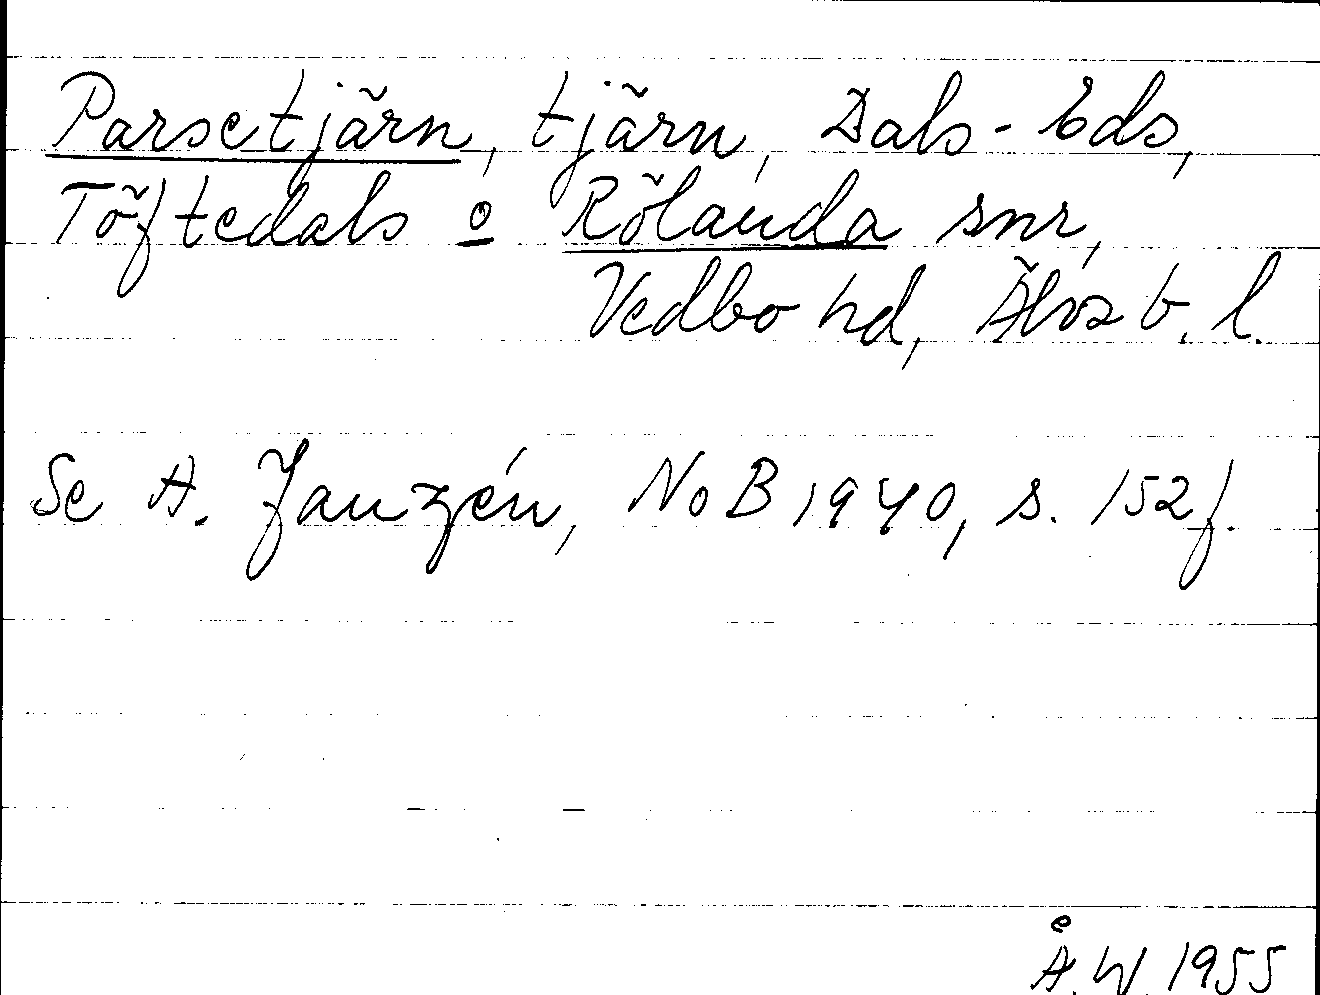 Parsetjärn, tjärn, Dals-Eds,
Töftedals o Rölanda snr,
Vedbo hd, Älvsb. l.
Se A. Janzén, NoB 1940, s. 152f.
Å.W. 1955